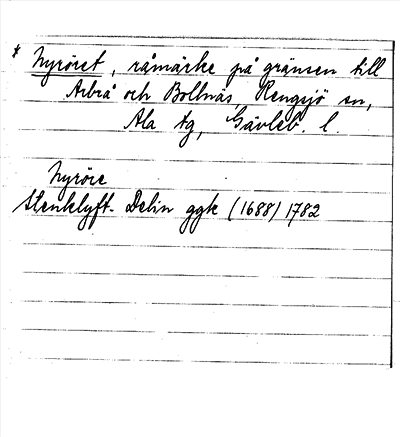 * Nyröret, råmärke på gränsen till
Arbrå och Bollnäs, Rengsjö sn,
Ala tg, Gävleb. l.
Nyröre
Stenklyft- Delin ggk (1688) 1782